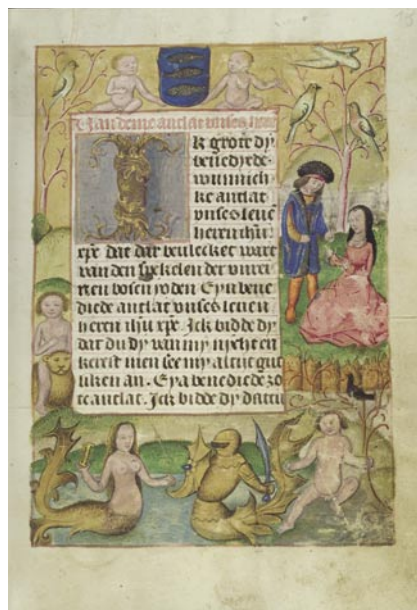 Van deme antlat unses heren
Ik grote dy
benedyede
wunnich
like antlat
unses leue
heren ihu
xpe dat dar beulecket wart
van den spekelen der unrei
nen bosen yoden Eya bene
diede antlat unses leuen
heren ihu xpe. Ick bidde dy
dat du dy van my nycht en
kerest men see my altyt gut
liken an. Eya benediede zo
te antlat. Ick bidde dy dattu